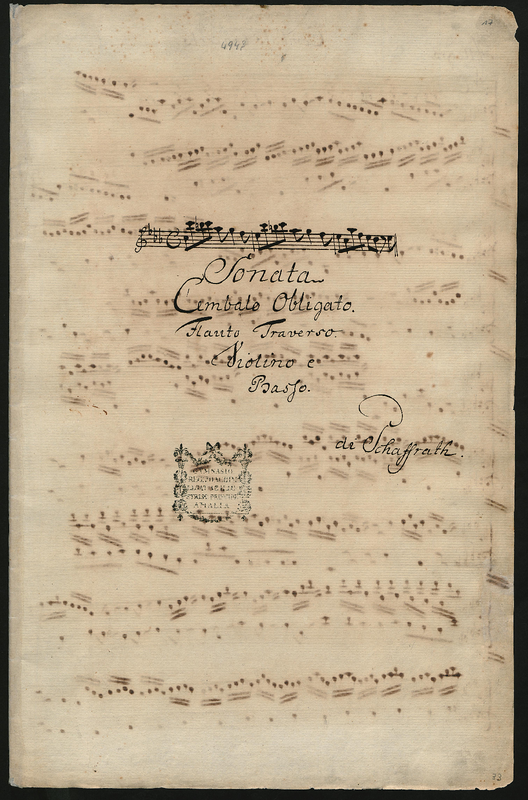 4942
17
Sonata
Cembalo Obligato.
Flauto Traverso.
e Violino e
Basso.
de Schaffrath.
GYMNASIO
AMALIA
33